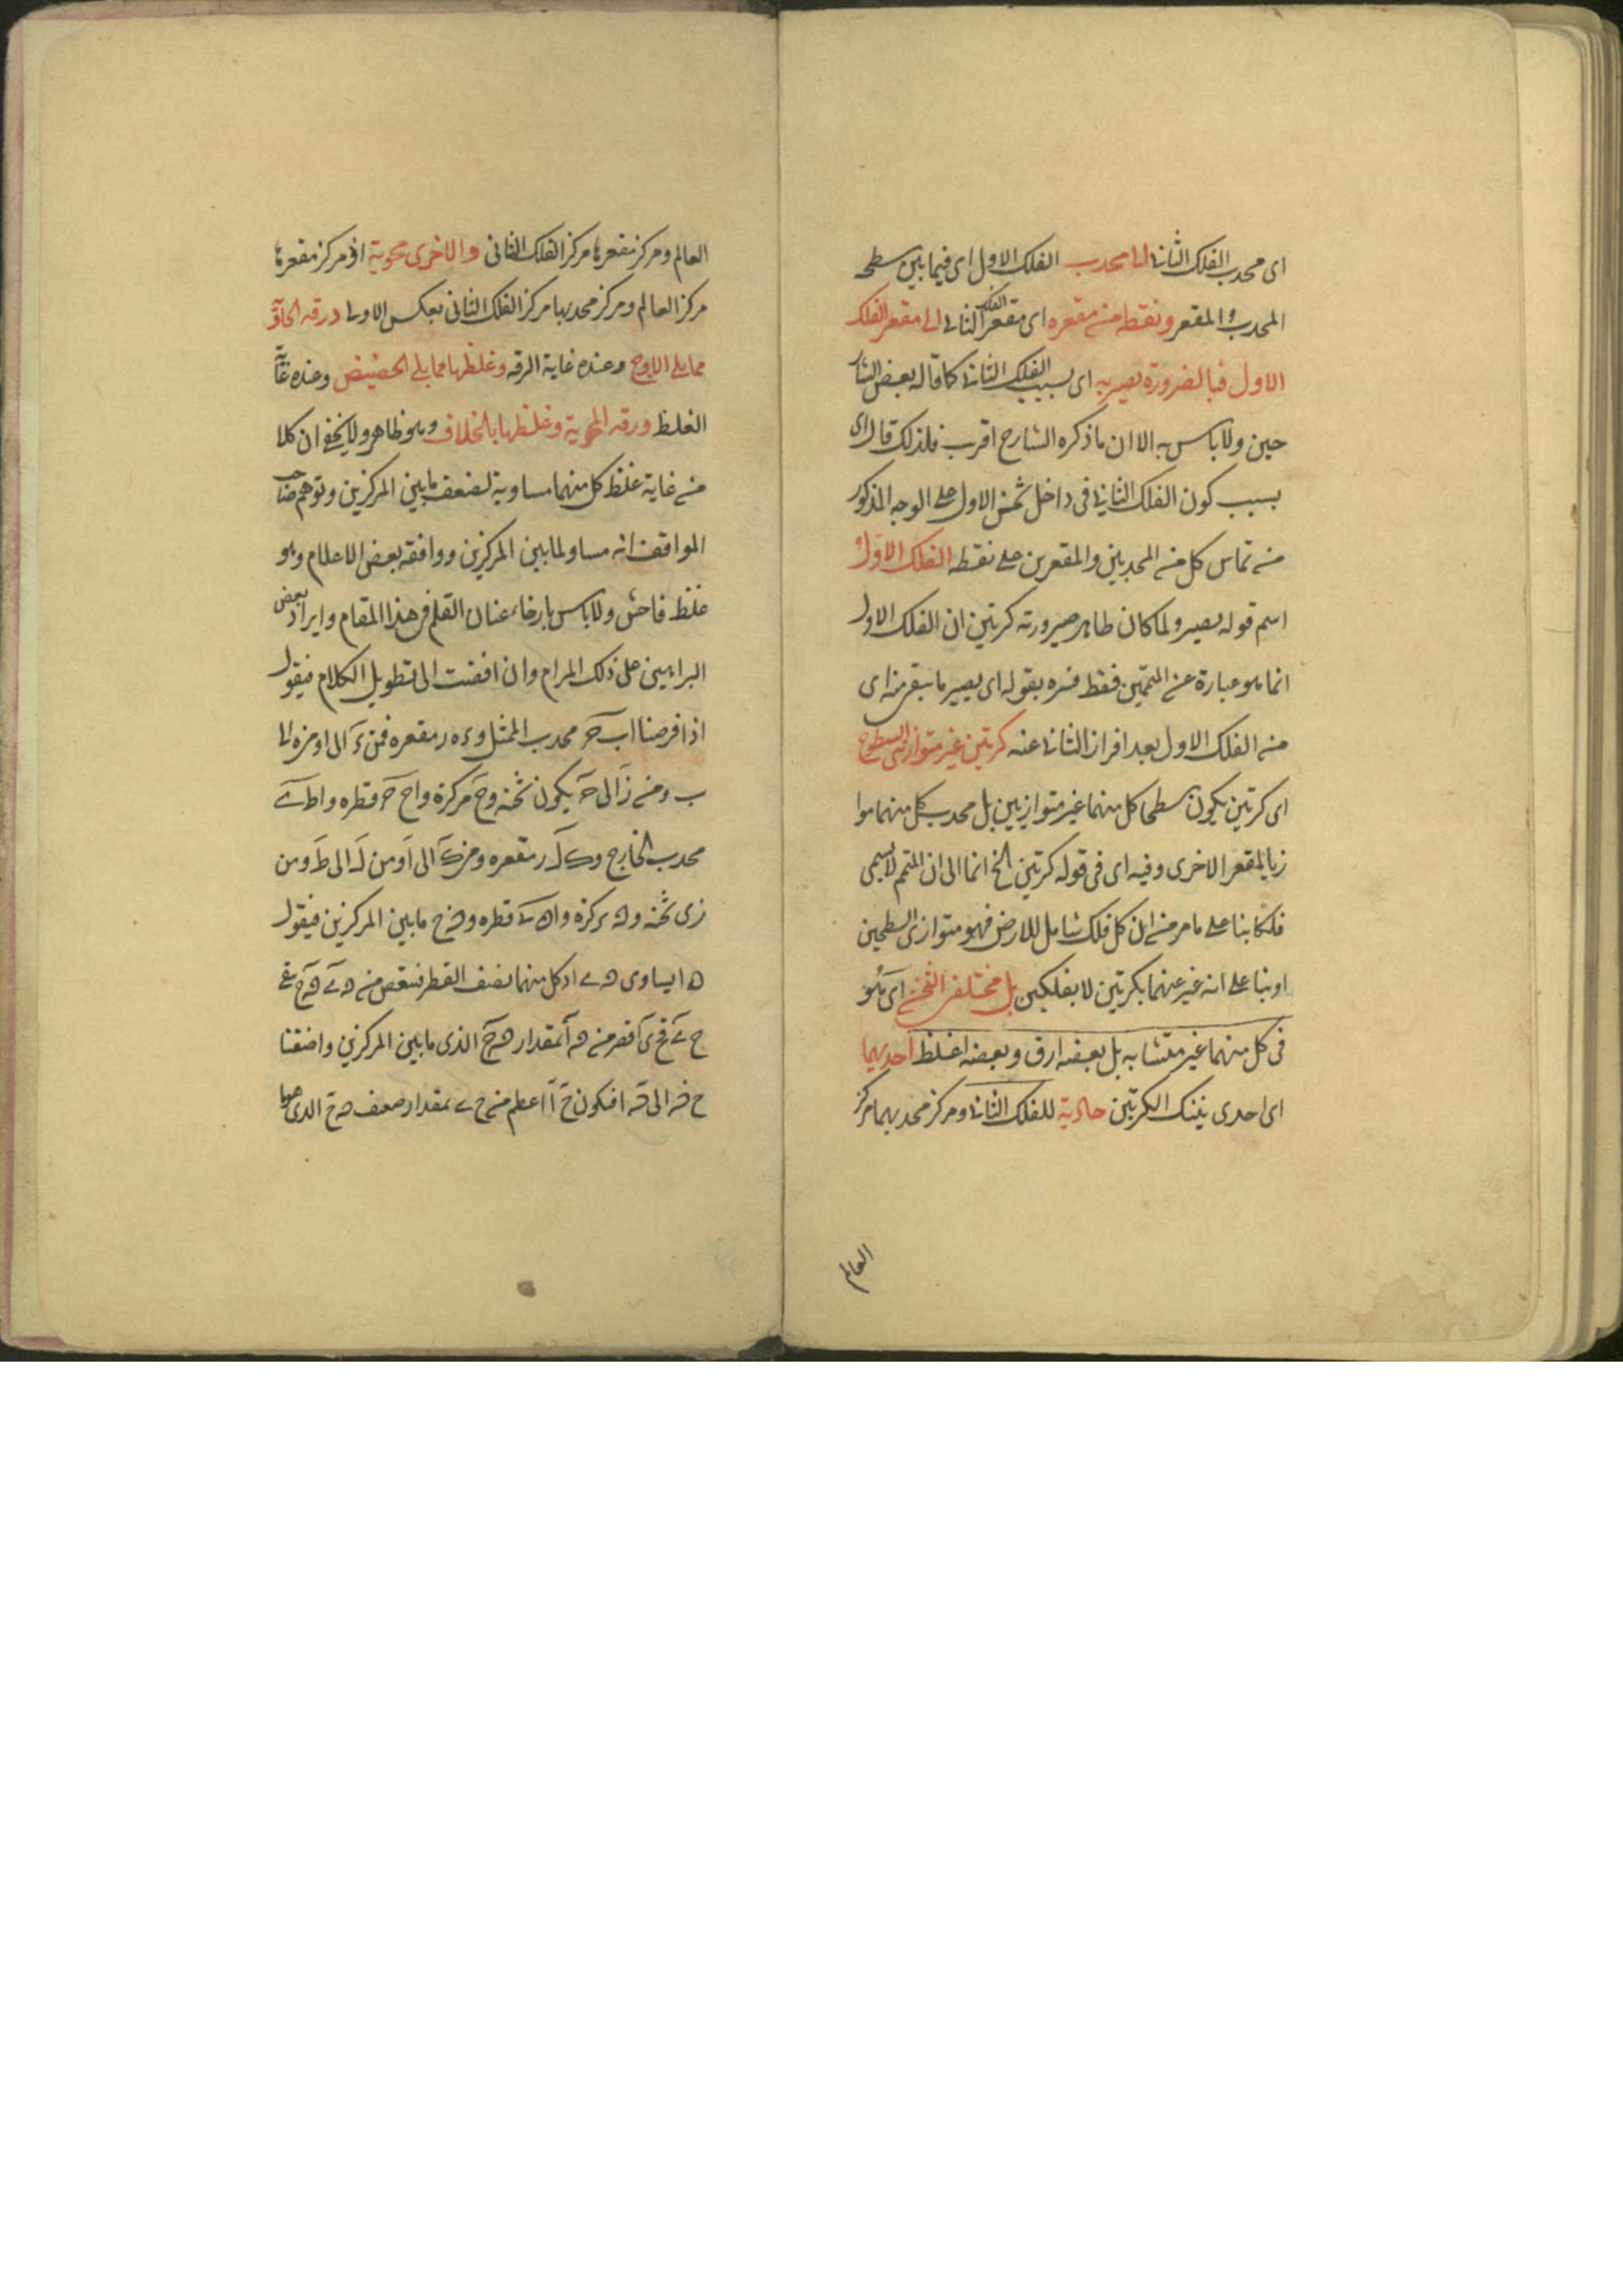 اى محدب الفلك الثانى الى محدب الفلك الاول اى فيما بين سطحه
المحدب والمقعر ونقطه من مقعره اى مقعر الفلك الثانى الى مقعر الفلك
الاول فبالضرورة يصير به اى بسبب الفلك الثانى كما قاله بعض الشار
حين ولا باس به الا ان ما ذكره الشارح اقرب فلذلك قال اى
بسبب كون الفلك الثانى فى داخل ثخن الاول على الوجه المذكور
من تماس كل من المحدبين والمقعرين على نقطه الفلك الاول
اسم قوله يصير ولما كان ظاهر صيرورته كرتين ان الفلك الاول
انما هو عبارة عن المتممين فقط فسره بقوله اى يصير ما يبقى منه اى
من الفلك الاول بعد افراز الثانى عنه كرتين غير متوازيتى السطوح
اى كرتين يكون سطحا كل منهما غير متوازيين بل محدب كل منهما موا
زيا لمقعر الاخرى وفيه اى فى قوله كرتين الخ ايما الى ان المتمم لا يسمى
فلكا بنا على ما مر من ان كل فلك شامل للارض فهو متوازى السطحين
او بنا على انه عبر عنهما بكرتين لا بفلكين بل مختلفى الثخن اى هو
فى كل منهما غير متشابه بل بعضه ارق وبعضه اغلظ احديهما
اى احدى تينك الكرتين حاوية للفلك الثانى ومركز محدبهما مركز
العالم
العالم ومركز مقعرها مركز الفلك الثانى والاخرى محوية اذ مركز مقعرها
مركز العالم ومركز محدبها مركز الفلك الثانى بعكس الاولى ورقه الحاوية
مما يلى الاوج وعنده غاية الرقه وغلظها مما يلى الحضيض وعنده غاية
الغلظ ورقه المحوية وغلظها بالخلاف وهو ظاهر ولا يخفى ان كلا
من غاية غلظ كل منهما مساوية لضعف ما بين المركزين وتوهم صاحب
المواقف انه مساو لما بين المركزين ووافقه بعض الاعلام وهو
غلط فاحش ولا باس بارخاء عنان القلم فى هذا المقام وايراد بعض
البراهين على ذلك المرام وان افضت الى تطويل الكلام فيقول
اذا فرضنا اب ح محدب الممثل و ء ه ر مقعره فمن ء الى ا ومن ه الى
ب ومن ز الى ح يكون ثخنه و ح مركزه و ا ح ح قطره و ا ط ى
محدب الخارج و ك ل ر مقعره ومن ك الى ا ومن ل الى ط ومن
ز ى ثخنه و ه مركزه و ا ه ى قطره و ه ح ما بين المركزين فيقول
ه ا يساوى ه ى اذ كل منهما نصف القطر فننقص من ه ى ه ح بقى
ح ى فح ى اقصر من ه ا بمقدار ه ح الذى ما بين المركزين واضفنا
ح ه الى ه ا فيكون ح ا اعظم من ح ى بمقدار ضعف ه ح الذى هو ما